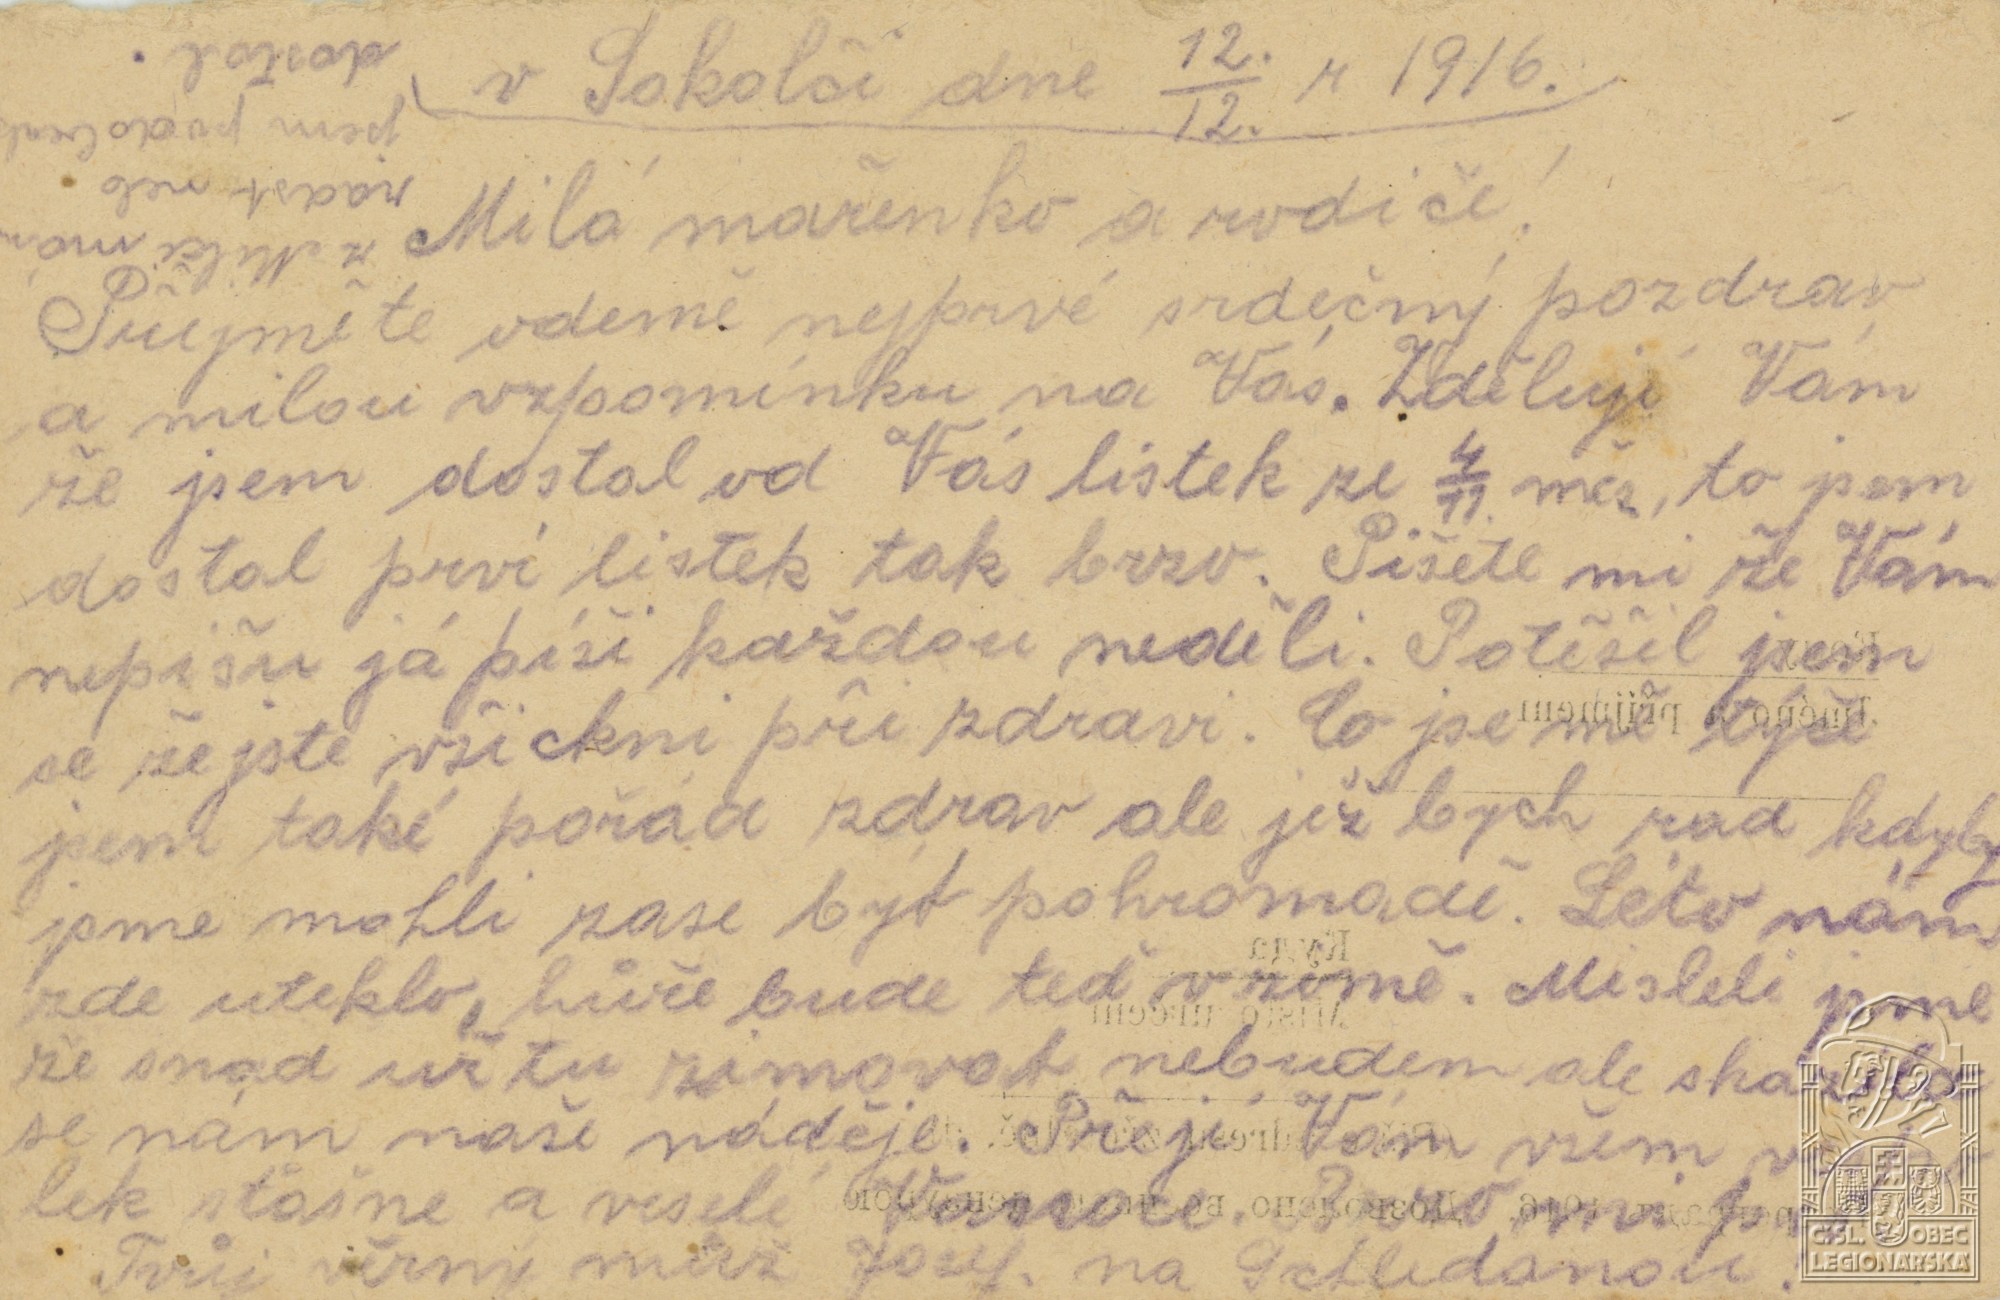 v Sokolči dne 12./12. r 1916.
Milá mařenko a rodiče!
Přijměte odemě nejprvé srdečný pozdrav
a milou vzpomínku na Vás. Zděluji Vám
že jsem dostal od Vás listek ze 4/11. měs, to jsem
dostal prví listek tak brzo. Pišete mi že Vám
nepišu já píši každou neděli. Potěšil jsem
se že jste všickni při zdravi. Co jse mě týče
jsem také pořád zdrav ale již bych rad kdyby
jsme mohli zase být pohromadě. Léto nám
zde uteklo, hůře bude teď v zimě. Misleli jsme
že snad už tu zimovat nebudem ale skazilo
se nám naše náděje. Přeji Vám všem
lek stàšne a veselé Vanoce. Brzo mi
Tvůj věrný muž Jozef. na Schledanou!
z Milči
radst neb
jsem podobenk
dostal.
Jméno a příjmení
Куда
Místo určení
Дозволено военной цензурою
Č.SL. OBEC
LEGIONÁŘSKÁ